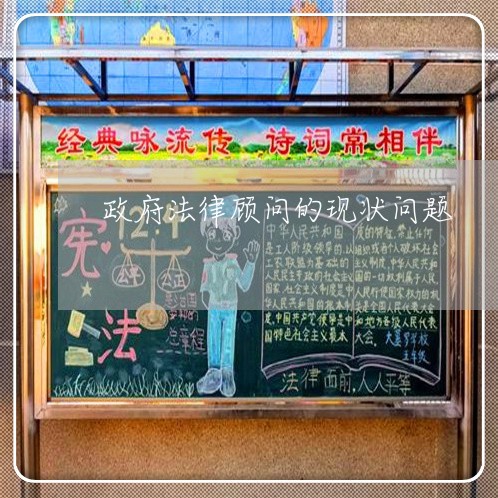 经典咏流传 诗词常相伴
政府法律顾问的现状问题
12.4
宪
法
公平
公正
治国
总章程
中华人民共和国
是工人阶级领导的,以
工农联盟为基础的
人民民主专政的社会主义
国家,社会主义制度是中
华人民共和国的根本制
度,中国共产党领导是中
国特色社会主义最本
质的特征,禁止任何
组织或者个人破坏社会
主义制度,中华人民共和
国的一切权利属于人民,
人民行使国家权力的机
关是全国人民代表大会
和地方各级人民代表
大会.
五年级
法律面前,人人平等